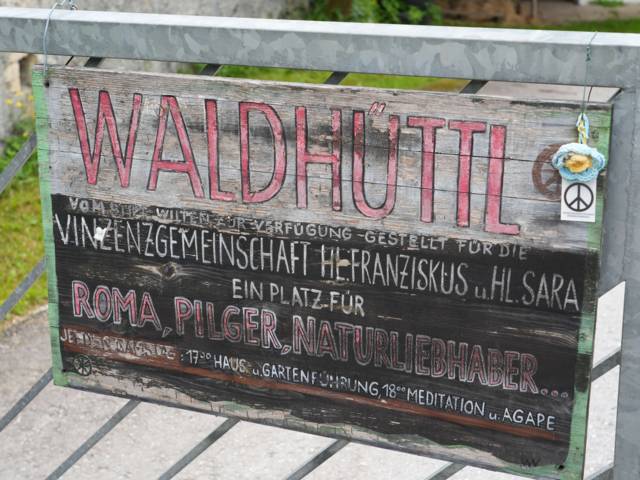 WALDHÜTTL
VOM STIFT WILTEN ZUR VERFÜGUNG GESTELLT FÜR DIE
VINZENZGEMEINSCHAFT HL. FRANZISKUS u. HL. SARA
EIN PLATZ FÜR
ROMA, PILGER, NATURLIEBHABER...
: 17⁰⁰ HAUS- u. GARTENFÜHRUNG, 18⁰⁰ MEDITATION u. AGAPE